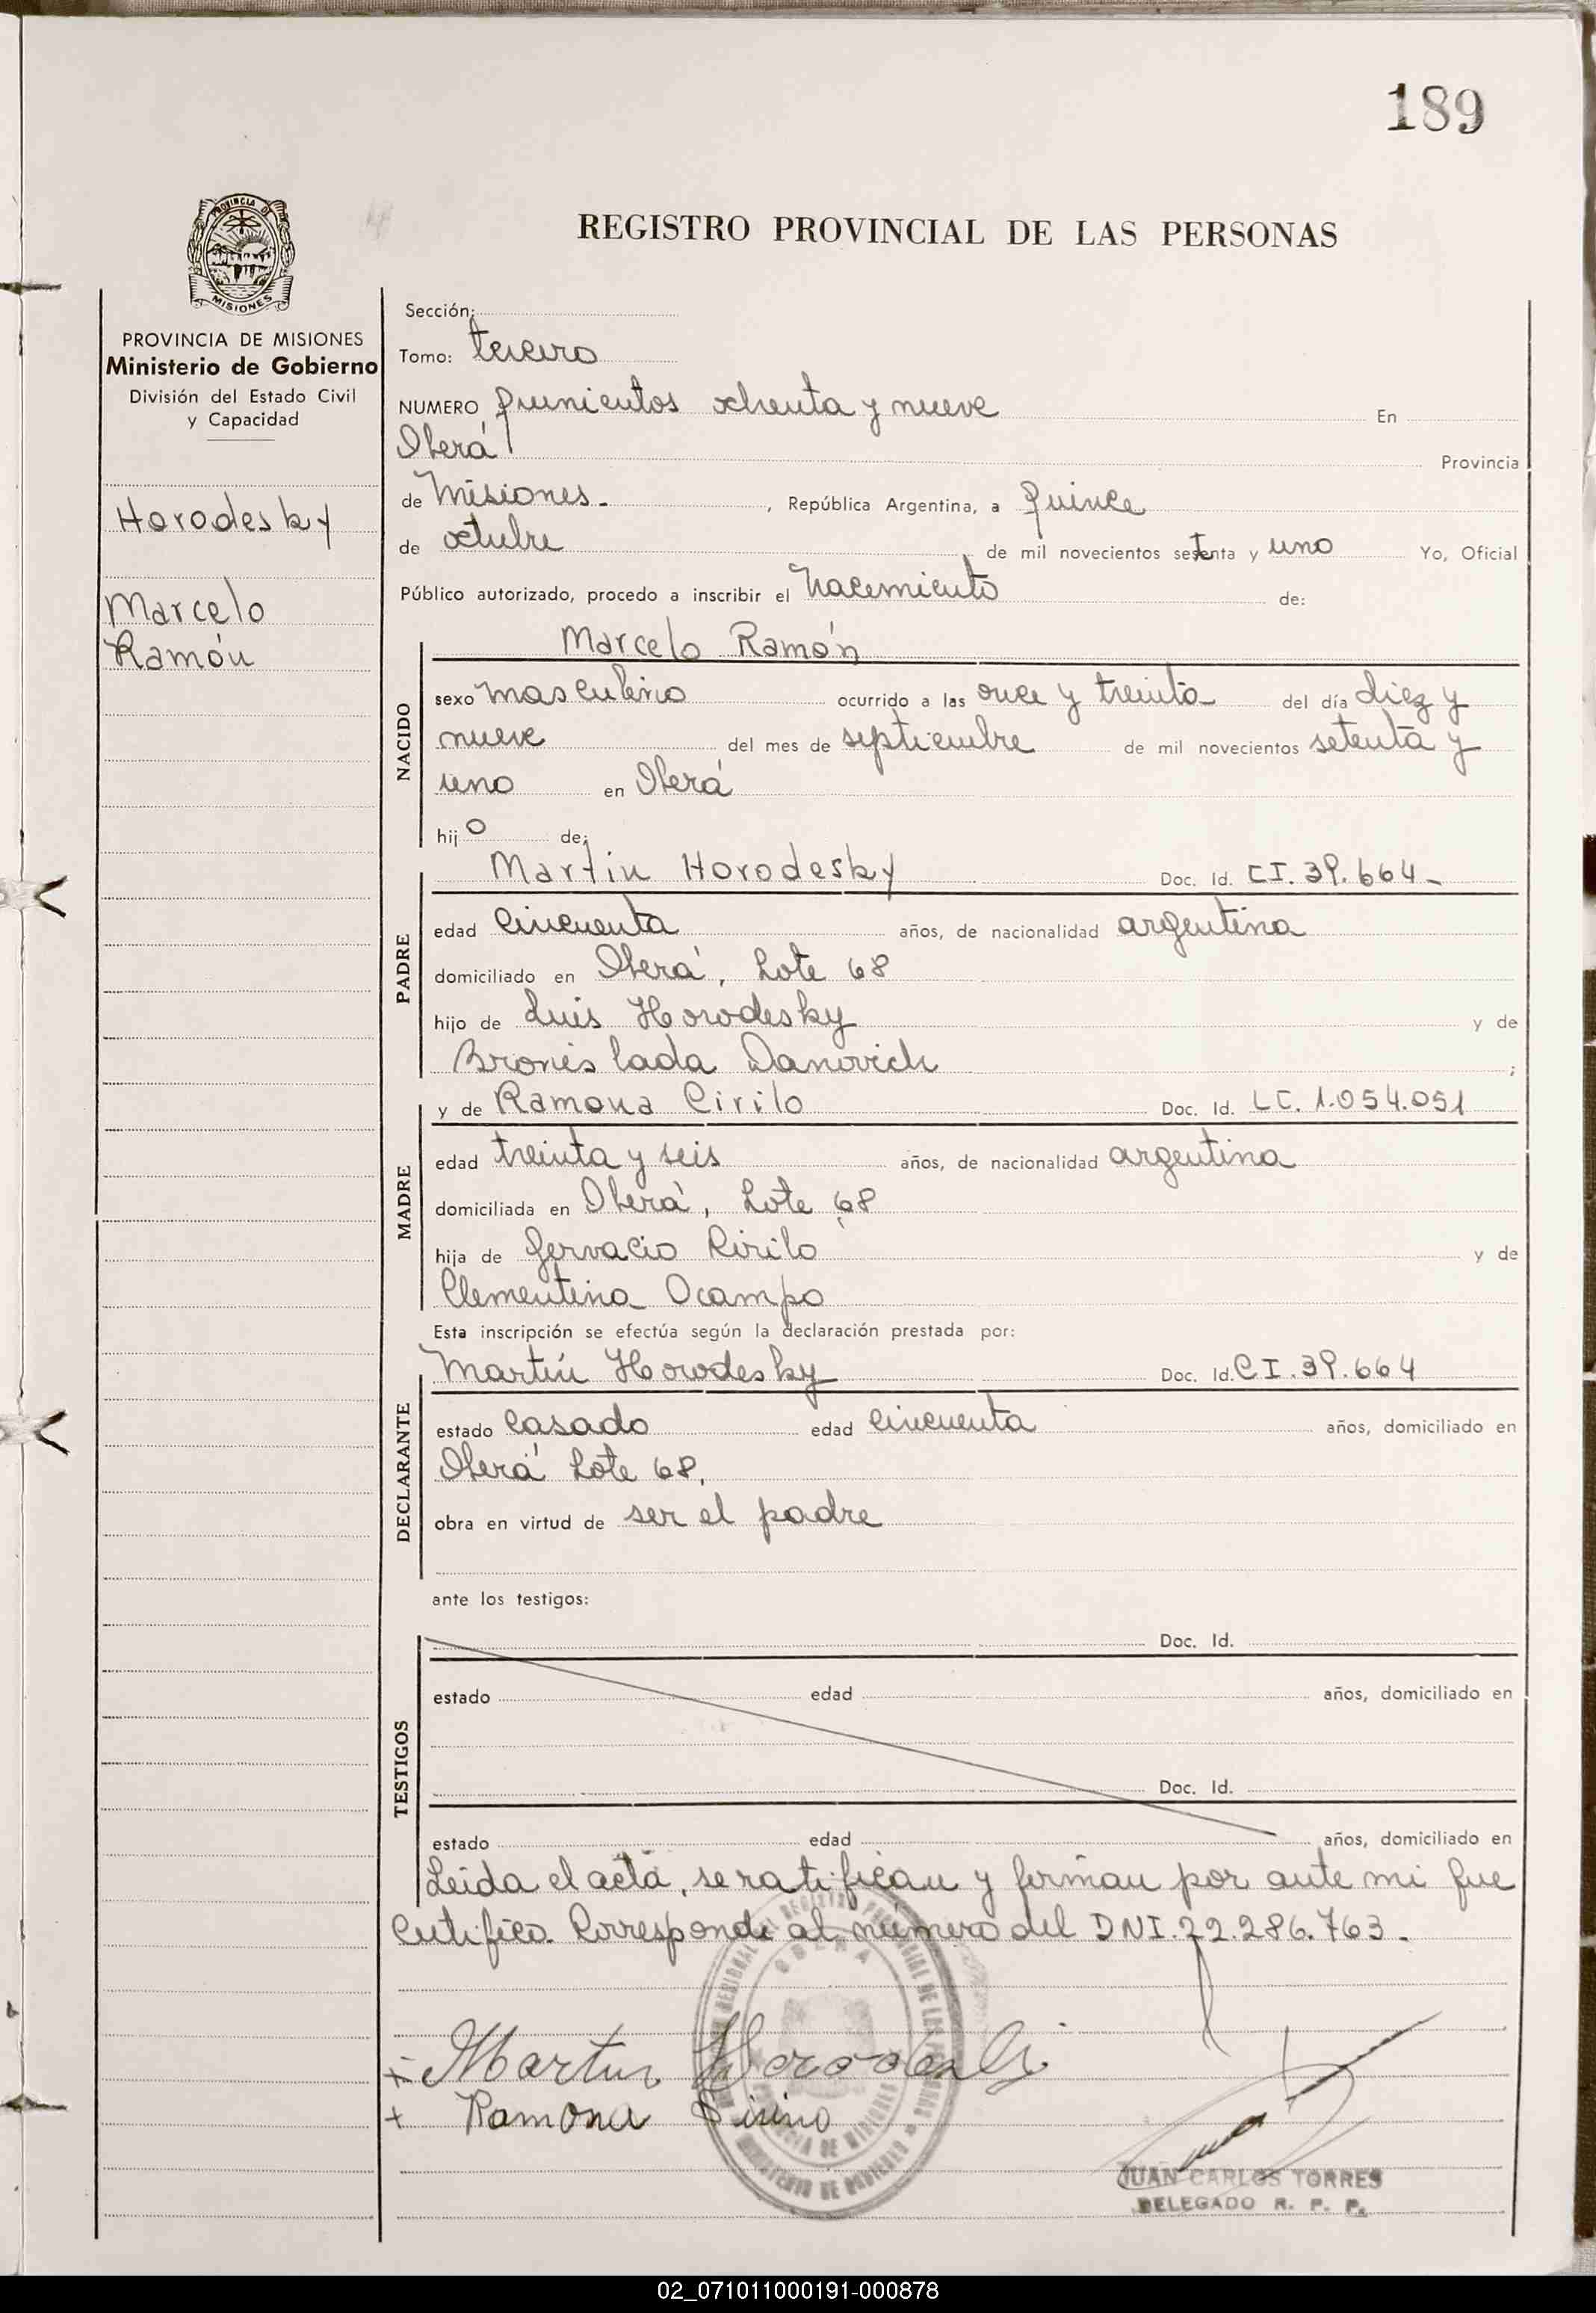 189
REGISTRO PROVINCIAL DE LAS PERSONAS
PROVINCIA DE
MISIONES
PROVINCIA DE MISIONES
Ministerio de Gobierno
División del Estado Civil
y Capacidad
Horodesky
Marcelo
Ramón
Sección:
Tomo: tercero
NUMERO quinientos ochenta y nueve En
Oberá Provincia
de Misiones. , República Argentina, a quince
de octubre de mil novecientos setenta y uno Yo, Oficial
Público autorizado, procedo a inscribir el nacimiento de:
Marcelo Ramón
NACIDO
sexo masculino ocurrido a las once y treinta del día diez y
nueve del mes de septiembre de mil novecientos setenta y
uno en Oberá
hijo de:
PADRE
Martin Horodesky Doc. Id. CI. 39.664-
edad cincuenta años, de nacionalidad argentina
domiciliado en Oberá, Lote 68
hijo de Luis Horodesky y de
Bronislada Danovich ;
MADRE
y de Ramona Cirilo Doc. Id. LC. 1.054.051
edad treinta y seis años, de nacionalidad argentina
domiciliada en Oberá, Lote 68
hija de Gervacio Cirilo y de
Clementina Ocampo
Esta inscripción se efectúa según la declaración prestada por:
DECLARANTE
Martín Horodesky Doc. Id. CI.39.664
estado casado edad cincuenta años, domiciliado en
Oberá Lote 68,
obra en virtud de ser el padre
ante los testigos:
TESTIGOS
Doc. Id.
estado edad años, domiciliado en
Doc. Id.
estado edad años, domiciliado en
Leida el acta, se ratifican y firman por ante mi que
certifico. Corresponde al número del DNI.22.286.763.
+ Martin Horodesky
+ Ramona
JUAN CARLOS TORRES
DELEGADO R. P. P.
02_071011000191-000878